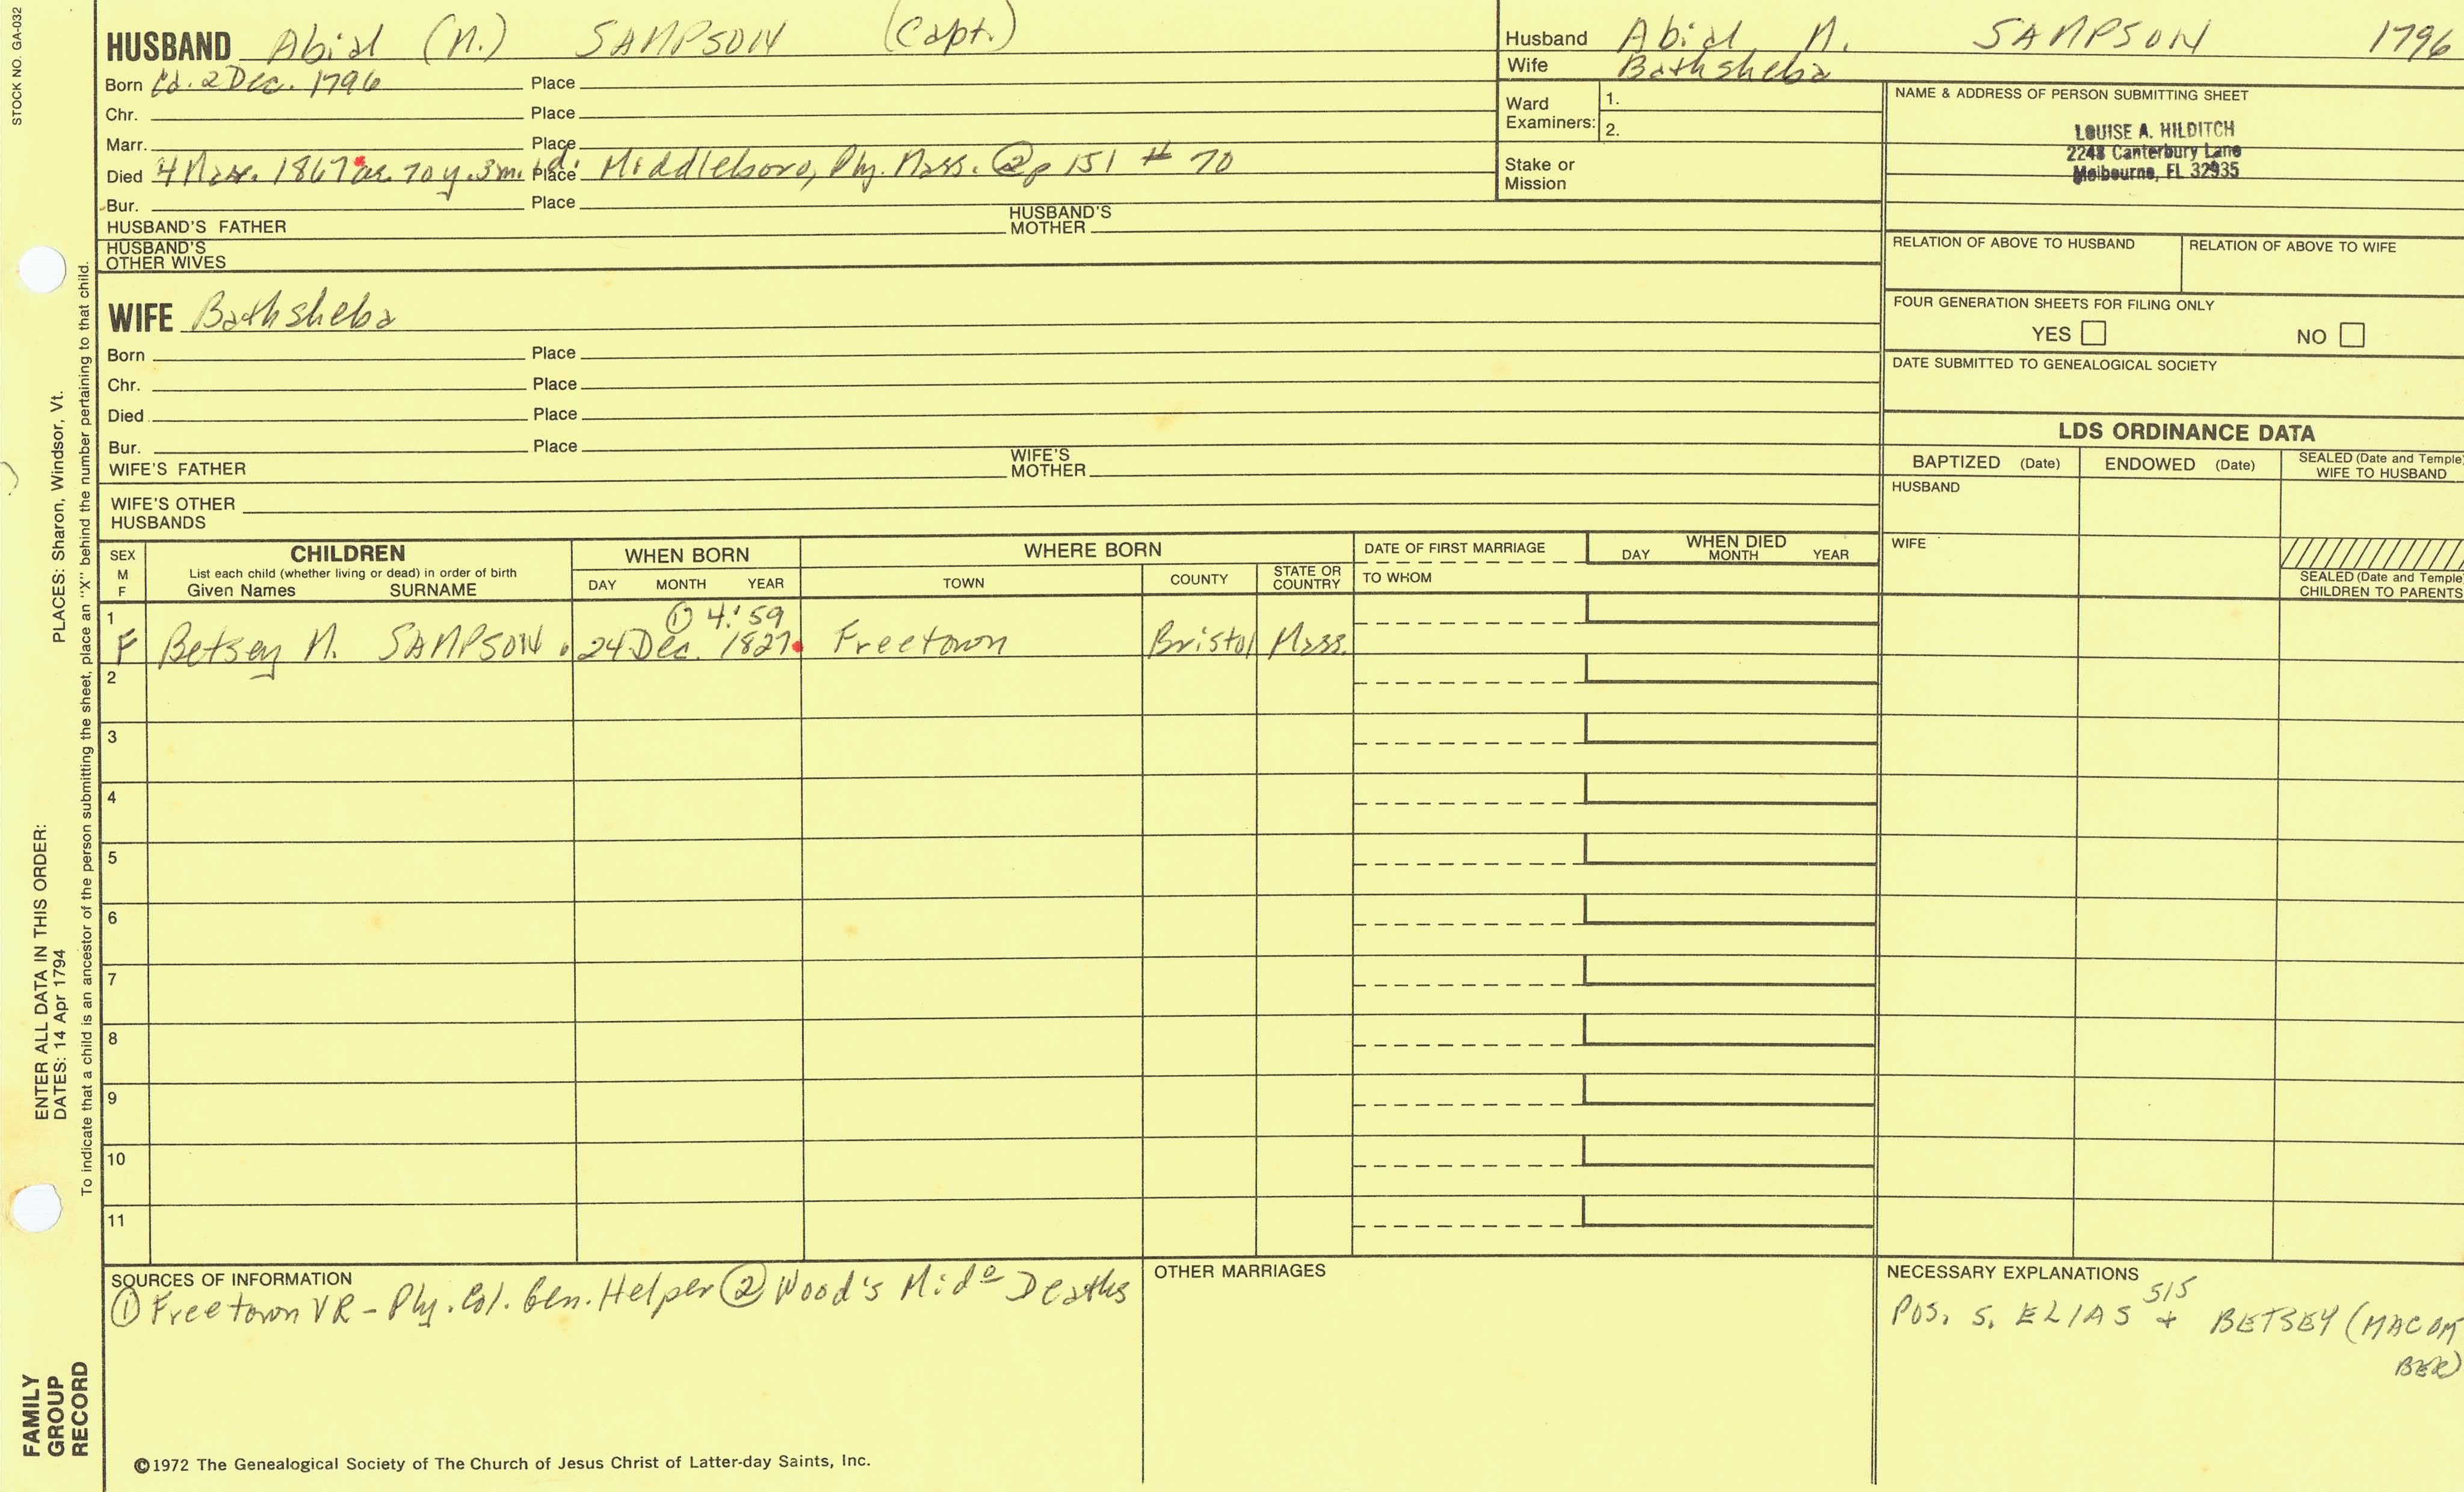 STOCK NO. GA-032
HUSBAND Abial (M.) SAMPSON (Capt.)
Born Cd. 2 Dec. 1796 Place
Chr. Place
Marr. Place
Died 4 Mar. 1867 ae. 70 y. 3m. 2d. Place Middleboro, Ply. Mass. ② p 151 # 70
Bur. Place
HUSBAND'S FATHER HUSBAND'S MOTHER
HUSBAND'S OTHER WIVES
Husband Abial M. SAMPSON 1796
Wife Bathsheba
Ward Examiners: 1.
2.
Stake or Mission
NAME & ADDRESS OF PERSON SUBMITTING SHEET
LOUISE A. HILDITCH
2248 Canterbury Lane
Melbourne, FL 32935
RELATION OF ABOVE TO HUSBAND RELATION OF ABOVE TO WIFE
FOUR GENERATION SHEETS FOR FILING ONLY
YES NO
DATE SUBMITTED TO GENEALOGICAL SOCIETY
WIFE Bathsheba
Born Place
Chr. Place
Died Place
Bur. Place
WIFE'S FATHER WIFE'S MOTHER
WIFE'S OTHER HUSBANDS
LDS ORDINANCE DATA
BAPTIZED (Date) ENDOWED (Date) SEALED (Date and Temple) WIFE TO HUSBAND
HUSBAND
WIFE
SEALED (Date and Temple) CHILDREN TO PARENTS
SEX M F CHILDREN WHEN BORN WHERE BORN DATE OF FIRST MARRIAGE WHEN DIED
List each child (whether living or dead) in order of birth
Given Names SURNAME DAY MONTH YEAR TOWN COUNTY STATE OR COUNTRY TO WHOM DAY MONTH YEAR
1 ① 4:59
F Betsey M. SAMPSON. 24 Dec. 1827. Freetown Bristol Mass.
2
3
4
5
6
7
8
9
10
11
SOURCES OF INFORMATION
① Freetown VR - Ply. Col. Gen. Helper ② Wood's Midº Deaths
OTHER MARRIAGES
NECESSARY EXPLANATIONS
SIS
POS. S. ELIAS + BETSEY (MACOM
BER)
©1972 The Genealogical Society of The Church of Jesus Christ of Latter-day Saints, Inc.
FAMILY
GROUP
RECORD
ENTER ALL DATA IN THIS ORDER:
DATES: 14 Apr 1794 PLACES: Sharon, Windsor, Vt.
To indicate that a child is an ancestor of the person submitting the sheet, place an "X" behind the number pertaining to that child.